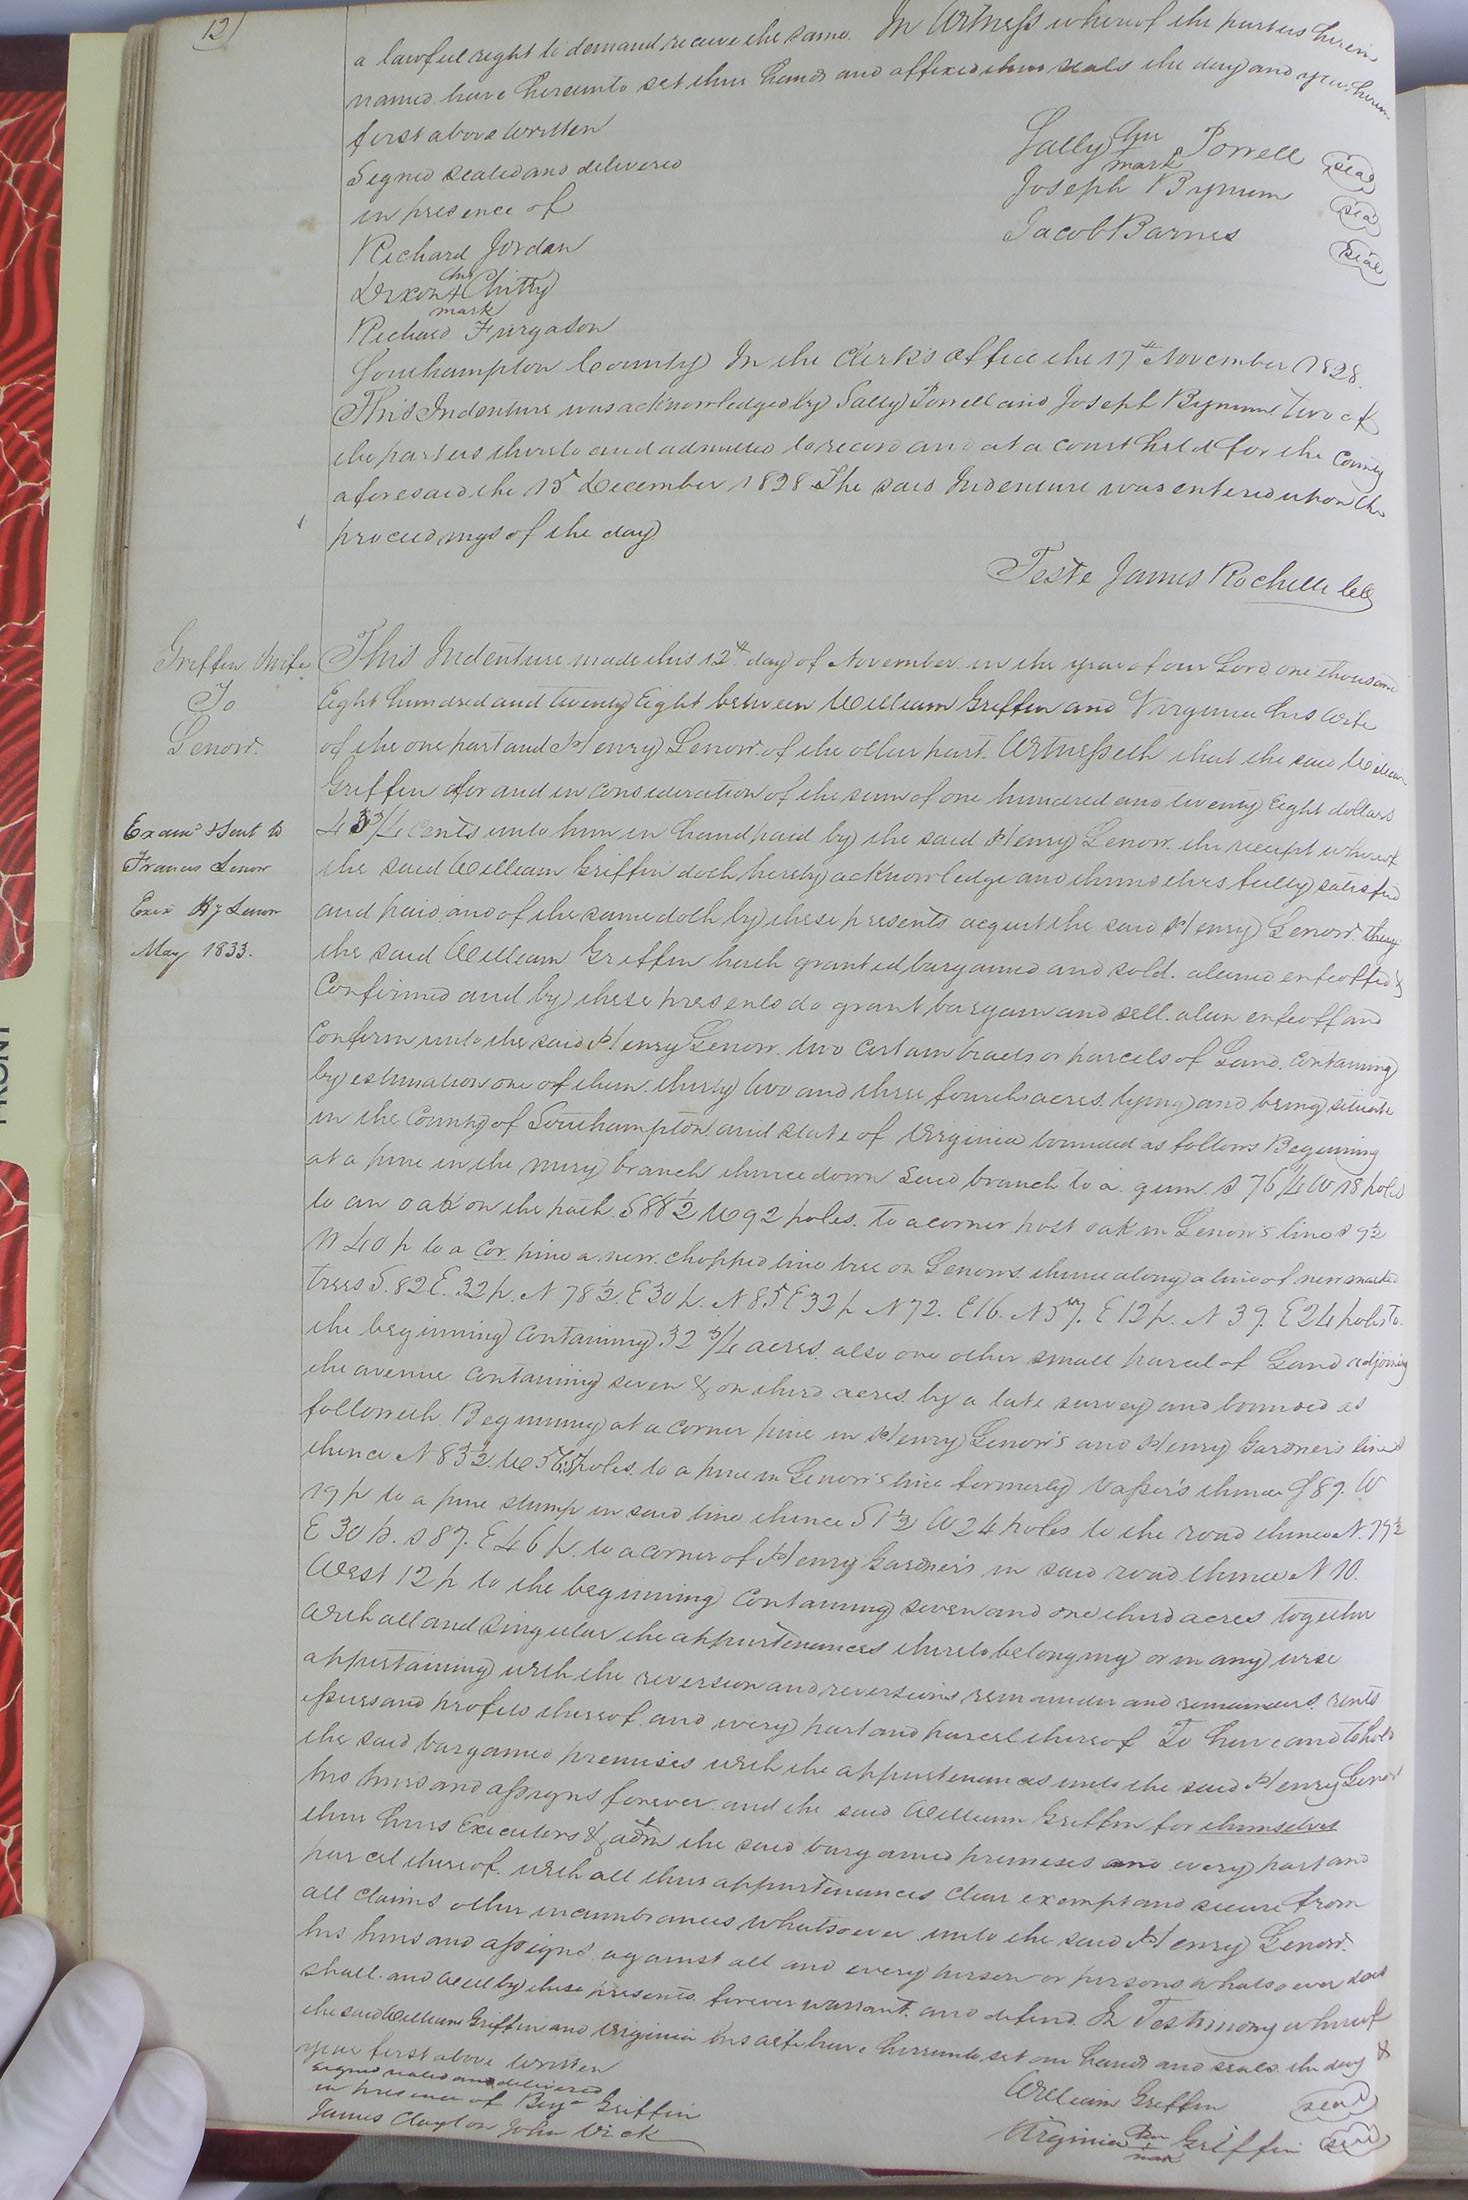 12
a lawful right to demand receive the same. In Witness whereof the parties herein
named have hereunto set their hands and affixed their seals the day and year herein
first above written
Signed sealed and delivered
in presence of
Richard Jordan
Dixon + Chitty
his
mark
Richard Furgason
Sally her Porrell seal
mark
Joseph Bynum seal
Jacob Barnes seal
Southampton County In the Clerk's Office the 17th November 1828.
This Indenture was acknowledged by Sally Porrell and Joseph Bynum two of
the parties thereto and admitted to record and at a court held for the County
aforesaid the 15 December 1828 The said Indenture was entered upon the
proceedings of the day
Teste James Rochelle CC
Griffin Wife
To
Lenow.
Exam'd & Sent to
Francis Lenow
Exix Hy Lenow
May 1833.
This Indenture made this 12th day of November in the year of our Lord one thousand
Eight hundred and twenty Eight between William Griffin and Virginia his Wife
of the one part and Henry Lenow of the other part. Witnesseth that the said William
Griffin for and in consideration of the sum of one hundred and twenty Eight dollars
43 3/4 cents unto him in hand paid by the said Henry Lenow the receipt whereof
the said William Griffin doth hereby acknowledge and themselves fully satisfied
and paid and of the same doth by these presents acquit the said Henry Lenow. they
the said William Griffin hath granted bargained and sold. aliened enfeoffed &
Confirmed and by these presents do grant bargain and sell. alien enfeoff and
Confirm unto the said Henry Lenow. two certain tracts or parcels of Land. Containing
by estimation one of them. thirty two and three fourth acres. lying and being situate
in the County of Southampton and state of Virginia bounded as follows Beginning
at a pine in the miry branch thence down said branch to a gum. S 76 1/4 W 18 poles
to an oak on the path. S 88 1/2 W 92 poles. to a corner post oak in Lenow's line S 9 1/2
W 40 p to a Cor pine a new. chopped line tree on Lenows. thence along a line of new marked
trees S. 82 E. 32 p. N 78 1/2. E 30 p. N 85 E 32 p N 72. E 16. N 57. E 12 p. N 39. E 24 poles to.
the beginning Containing 32 3/4 acres. also one other small parcel of Land adjoining
the avenue Containing seven & one third acres. by a late survey and bounded as
followeth. Beginning at a corner pine in Henry Lenow's and Henry Gardner's line
thence N 83 1/2. W poles. to a pine in Lenow's line formerly Vasser's thence S 89. W
19 p to a pine stump in said line thence S 1 1/2 W 24 poles to the road thence N. 79 1/2
E 30 p. S 87. E 46 p. to a corner of Henry Gardner's in said road thence N 10.
West 12 p to the beginning Containing seven and one third acres together
with all and singular the appurtenances thereto belonging or in any wise
appertaining with the reversion and reversions remainder and remainders. rents
issues and profits thereof. and every part and parcel thereof To have and to hold
the said bargained premises with the appurtenances unto the said Henry Lenow
his heirs and assigns forever. and the said William Griffin for themselves
their heirs Executors & adm the said bargained premises and every part and
parcel thereof. with all their appurtenances clear exempt and secure from
all claims other incumbrances whatsoever unto the said Henry Lenow.
his heirs and assigns against all and every person or persons whatsoever does
shall. and will by these presents. forever warrant and defend. In Testimony whereof
the said William Griffin and Virginia his wife have hereunto set our hands and seals. the day &
year first above written
Signed sealed and delivered
in presence of Benja Griffin
James Clayton John Vick
William Griffin seal
Virginia her Griffin seal
mark